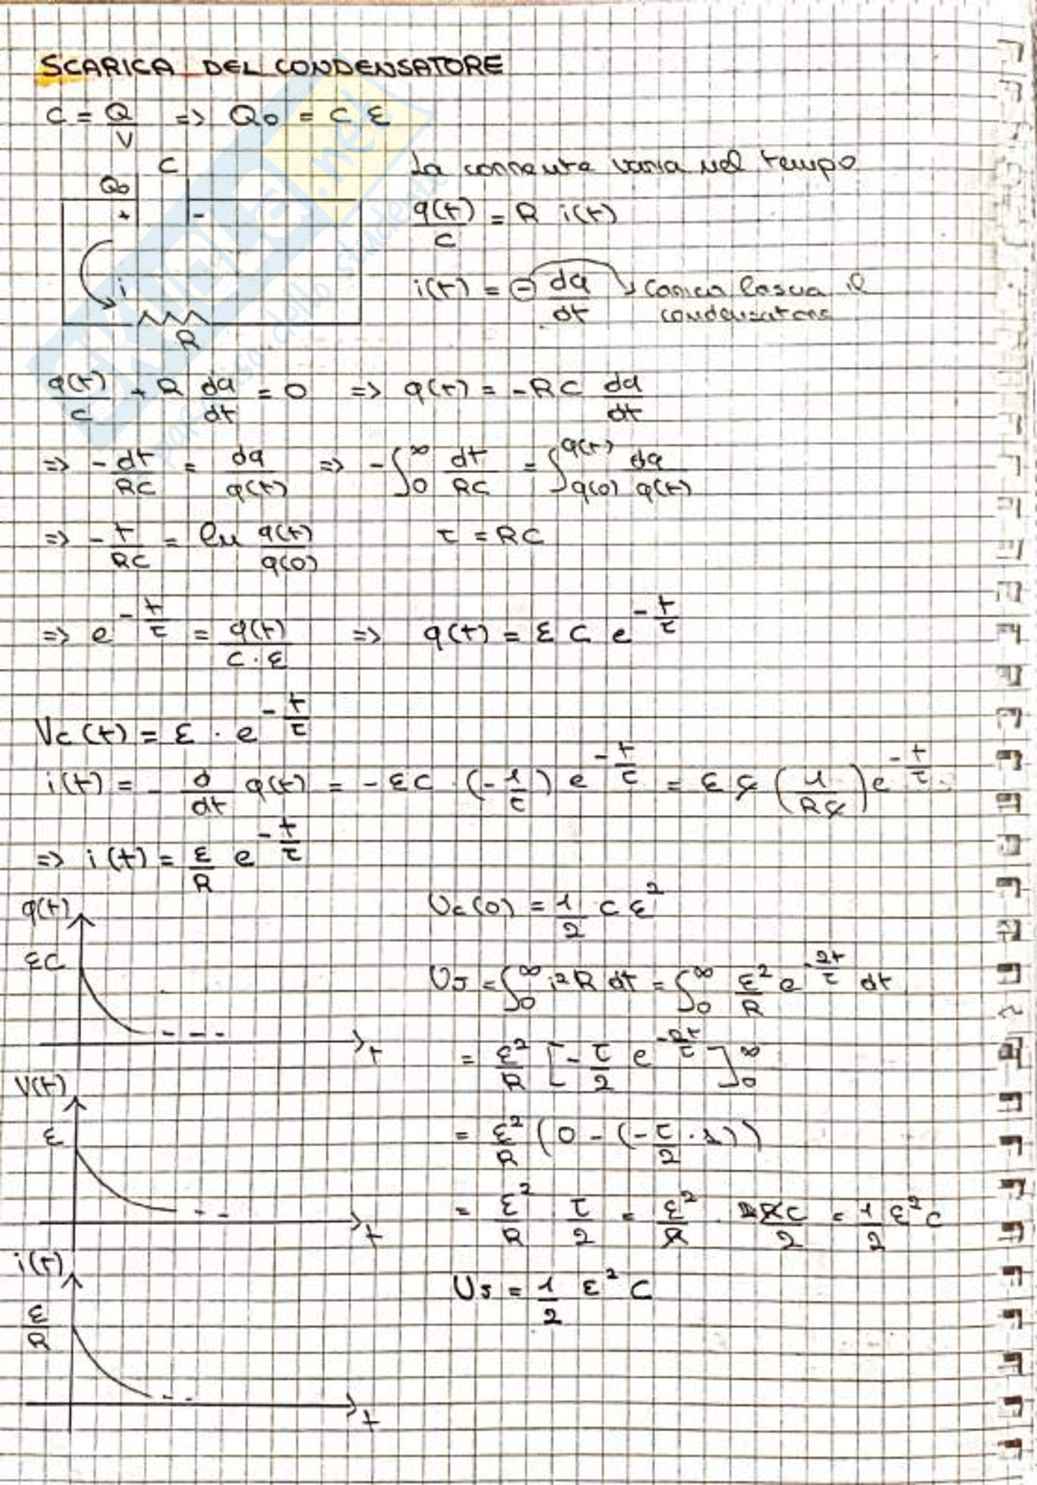 SCARICA DEL CONDENSATORE
C = Q/V => Q0 = C ε
La corrente varia nel tempo
C
Q0
+ -
i
R
q(t)/C = R i(t)
i(t) = - dq/dt carica lascia il condensatore
q(t)/C + R dq/dt = 0 => q(t) = -RC dq/dt
=> -dt/RC = dq/q(t) => -∫0^∞ dt/RC = ∫q(0)^q(t) dq/q(t)
=> -t/RC = ln q(t)/q(0) τ = RC
=> e^(-t/τ) = q(t)/(C·ε) => q(t) = ε C e^(-t/τ)
Vc(t) = ε · e^(-t/τ)
i(t) = - d/dt q(t) = -εC · (-1/τ) e^(-t/τ) = εC (1/RC) e^(-t/τ)
=> i(t) = ε/R e^(-t/τ)
q(t)
εC
t
V(t)
ε
t
i(t)
ε/R
t
Uc(0) = 1/2 C ε²
UJ = ∫0^∞ i²R dt = ∫0^∞ ε²/R e^(-2t/τ) dt
= ε²/R [-τ/2 e^(-2t/τ)]0^∞
= ε²/R (0 - (-τ/2 · 1))
= ε²/R τ/2 = ε²/R · RC/2 = 1/2 ε² C
UJ = 1/2 ε² C